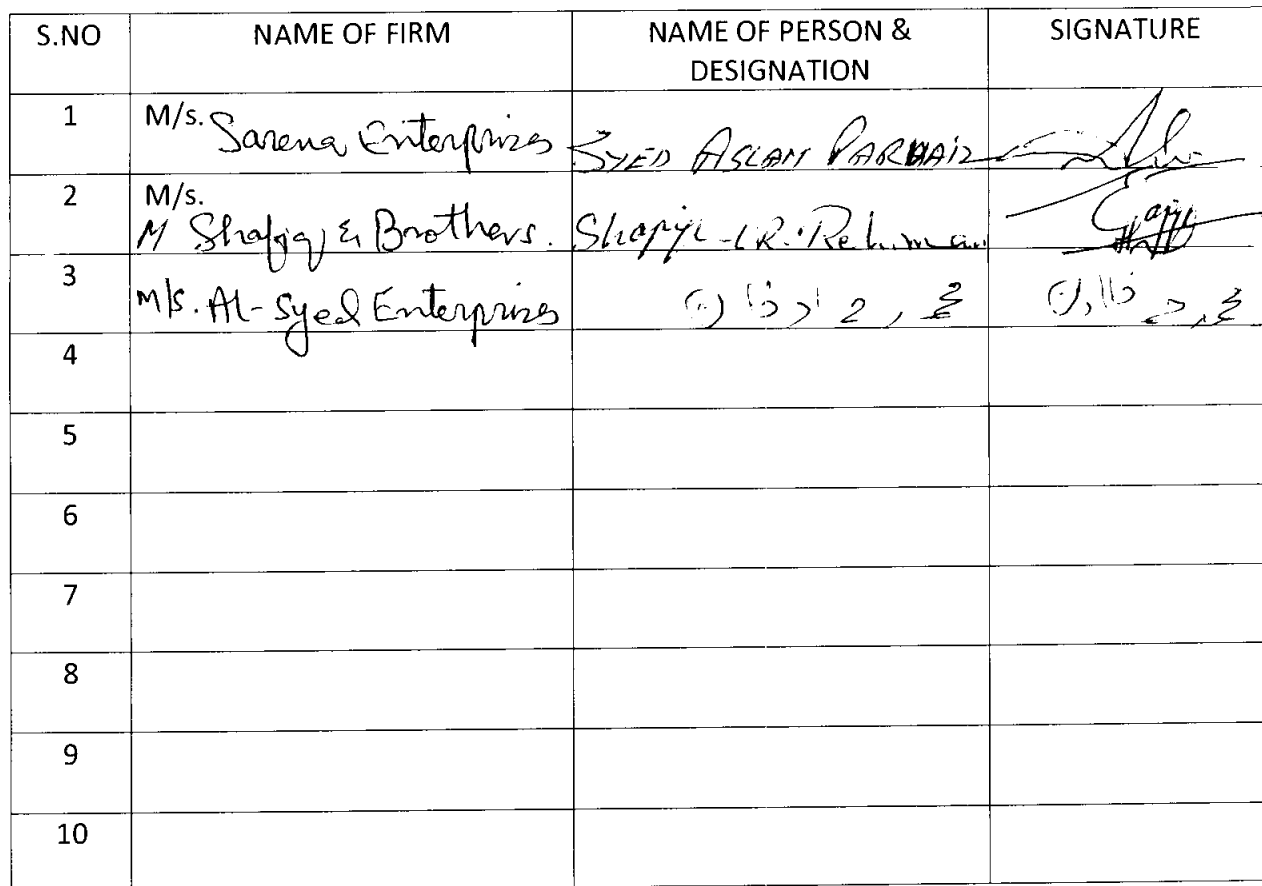 S.NO NAME OF FIRM NAME OF PERSON & DESIGNATION SIGNATURE
1 M/s. Sarena Enterprizes SYED ASLAM
2 M/s. M Shafiq & Brothers. Rehman
3 M/s. Al-Syed Enterprizes
4
5
6
7
8
9
10